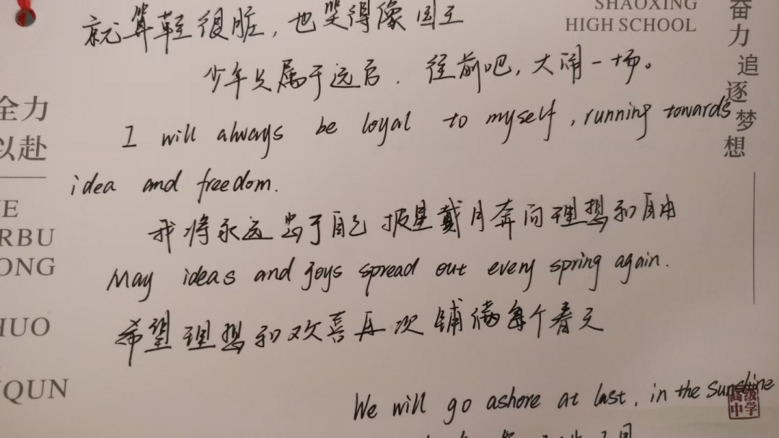 就算鞋很脏，也笑得像国王
SHAOXING
HIGH SCHOOL
奋力追逐梦想
少年只属于远方．往前吧，大闹一场。
全力
以赴
I will always be loyal to myself, running towards
idea and freedom.
我将永远忠于自己 披星戴月奔向理想和自由
May ideas and joys spread out every spring again.
希望理想和欢喜再次铺满每个春天
RBU
ONG
HUO
QUN
We will go ashore at last, in the sunshine
高级
中学